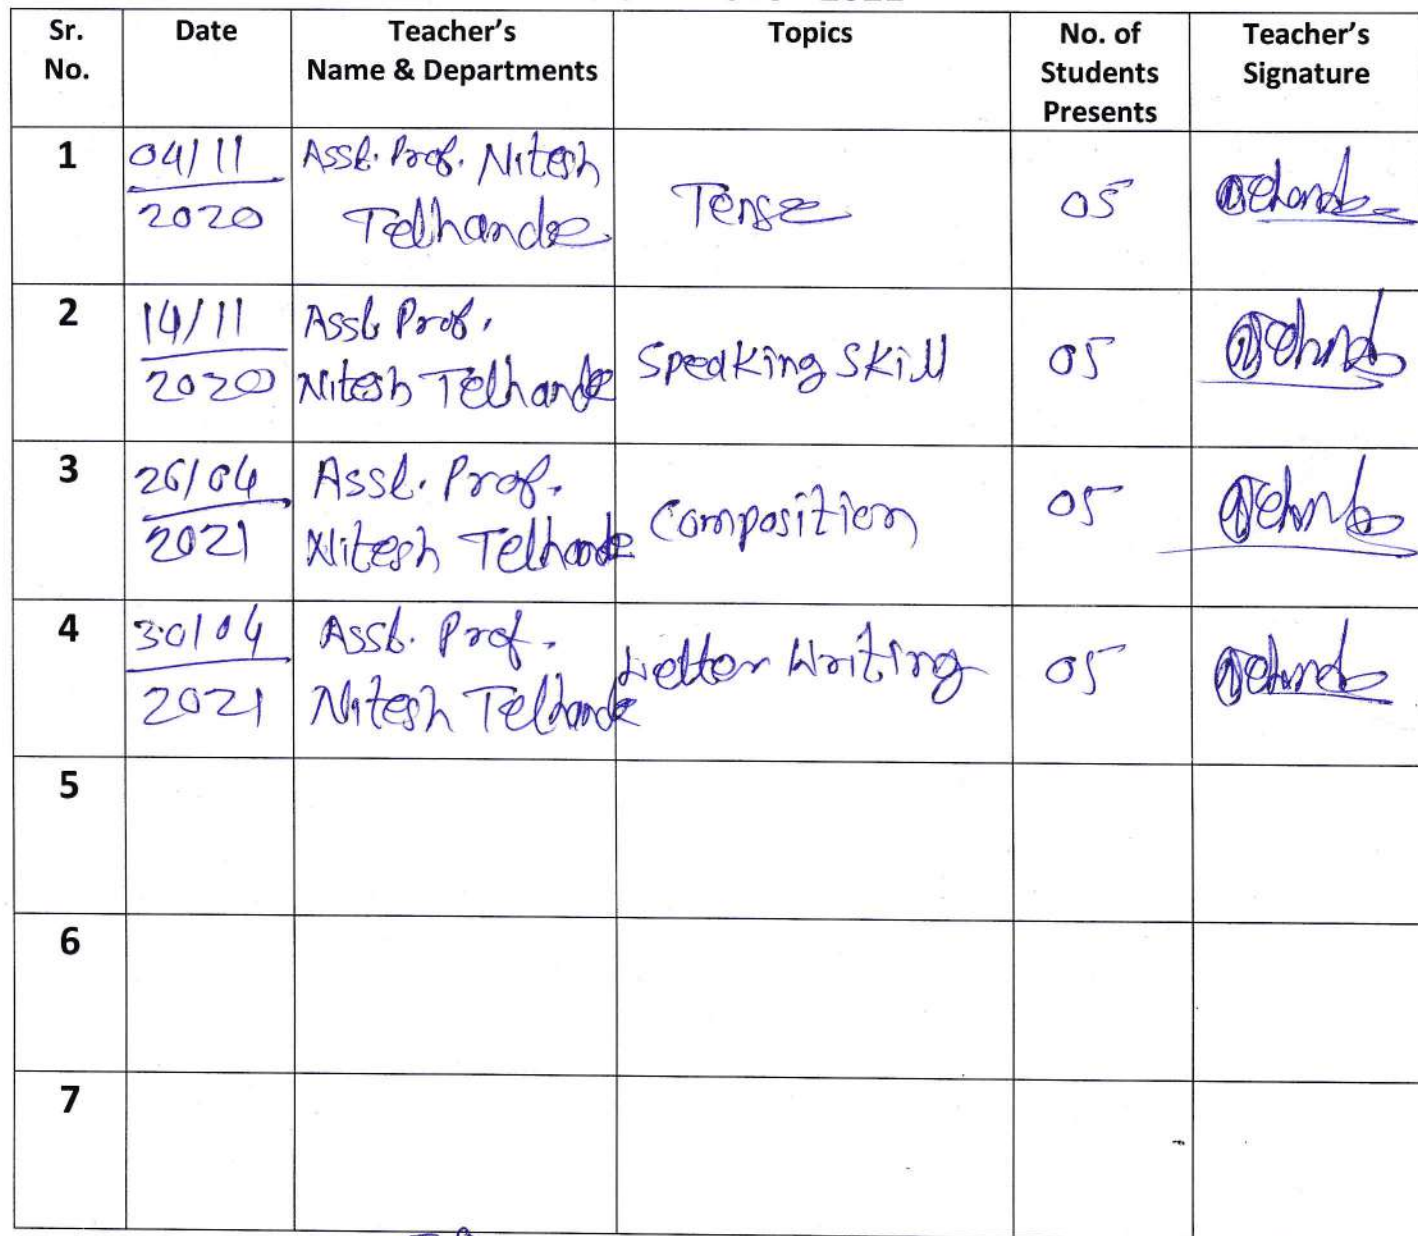 Sr. No. Date Teacher's Name & Departments Topics No. of Students Presents Teacher's Signature
1 04/11 2020 Asst. Prof. Nitesh Telhande Tense 05
2 14/11 2020 Asst Prof. Nitesh Telhande Speaking Skill 05
3 26/04 2021 Asst. Prof. Nitesh Telhande Composition 05
4 30/04 2021 Asst. Prof. Nitesh Telhande Letter Writing 05
5
6
7